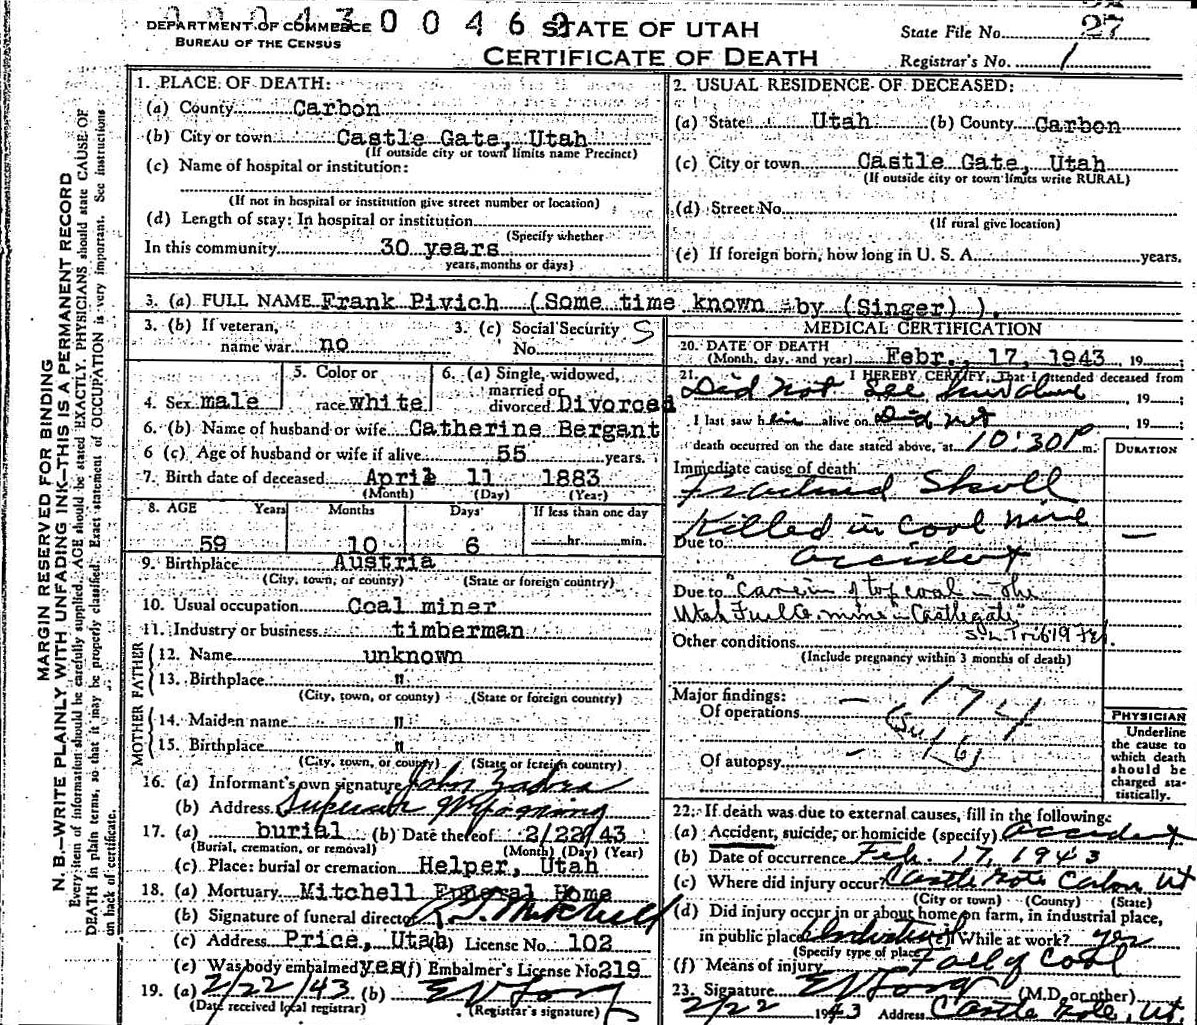 DEPARTMENT OF COMMERCE
BUREAU OF THE CENSUS
0 0 4 6
STATE OF UTAH
CERTIFICATE OF DEATH
State File No. 27
Registrar's No. 1
MARGIN RESERVED FOR BINDING
N. B.—WRITE PLAINLY WITH UNFADING INK—THIS IS A PERMANENT RECORD
Every item of information should be carefully supplied. AGE should be stated EXACTLY. PHYSICIANS should state CAUSE OF
DEATH in plain terms, so that it may be properly classified. Exact statement of OCCUPATION is very important. See instructions
on back of certificate.
1. PLACE OF DEATH:
(a) County Carbon
(b) City or town Castle Gate, Utah
(If outside city or town limits name Precinct)
(c) Name of hospital or institution:
(If not in hospital or institution give street number or location)
(d) Length of stay: In hospital or institution
(Specify whether
In this community 30 years
years, months or days)
2. USUAL RESIDENCE OF DECEASED:
(a) State Utah (b) County Carbon
(c) City or town Castle Gate, Utah
(If outside city or town limits write RURAL)
(d) Street No.
(If rural give location)
(e) If foreign born, how long in U. S. A. years.
3. (a) FULL NAME Frank Pivich (Some time known by (Singer) ).
3. (b) If veteran,
name war no
3. (c) Social Security
No.
S
4. Sex male
5. Color or
race white
6. (a) Single, widowed,
married or
divorced Divorced
6. (b) Name of husband or wife Catherine Bergant
6 (c). Age of husband or wife if alive 55 years.
7. Birth date of deceased April 11 1883
(Month) (Day) (Year)
8. AGE Years Months Days If less than one day
59 10 6 hr. min.
9. Birthplace Austria
(City, town, or county) (State or foreign country)
10. Usual occupation Coal miner
11. Industry or business timberman
FATHER
12. Name unknown
13. Birthplace "
(City, town, or county) (State or foreign country)
MOTHER
14. Maiden name "
15. Birthplace "
(City, town, or county) (State or foreign country)
16. (a) Informant's own signature John
(b) Address Superior Wyoming
17. (a) burial (b) Date thereof 2/22/43
(Burial, cremation, or removal) (Month) (Day) (Year)
(c) Place: burial or cremation Helper, Utah
18. (a) Mortuary Mitchell Funeral Home
(b) Signature of funeral director J. Mitchell
(c) Address Price, Utah (b) License No. 102
(e) Was body embalmed yes (f) Embalmer's License No 219
19. (a) 2/22/43 (b)
(Date received local registrar) (Registrar's signature)
MEDICAL CERTIFICATION
20. DATE OF DEATH
(Month, day, and year) Febr., 17, 1943, 19 ;
21. I HEREBY CERTIFY, That I attended deceased from
Did not see him alive, 19 ;
I last saw him alive on Did not, 19 ;
death occurred on the date stated above, at 10:30 P m.
DURATION
Immediate cause of death
Fractured Skull
Killed in Coal Mine
Due to
accident
Due to "Cave in of top coal in the
Utah Fuel Co. mine in Castlegate"
S L Trib 19 Feb.
Other conditions
(Include pregnancy within 3 months of death)
Major findings:
Of operations
174
Of autopsy
PHYSICIAN
Underline
the cause to
which death
should be
charged sta-
tistically.
22. If death was due to external causes, fill in the following:
(a) Accident, suicide, or homicide (specify) accident
(b) Date of occurrence Feb. 17, 1943
(c) Where did injury occur? Castle Gate Carbon Ut
(City or town) (County) (State)
(d) Did injury occur in or about home, on farm, in industrial place,
in public place? Industrial While at work? yes
(Specify type of place)
(f) Means of injury Fall of Coal
23. Signature (M.D. or other)
2/22 1943 Address Castle Gate, Ut.